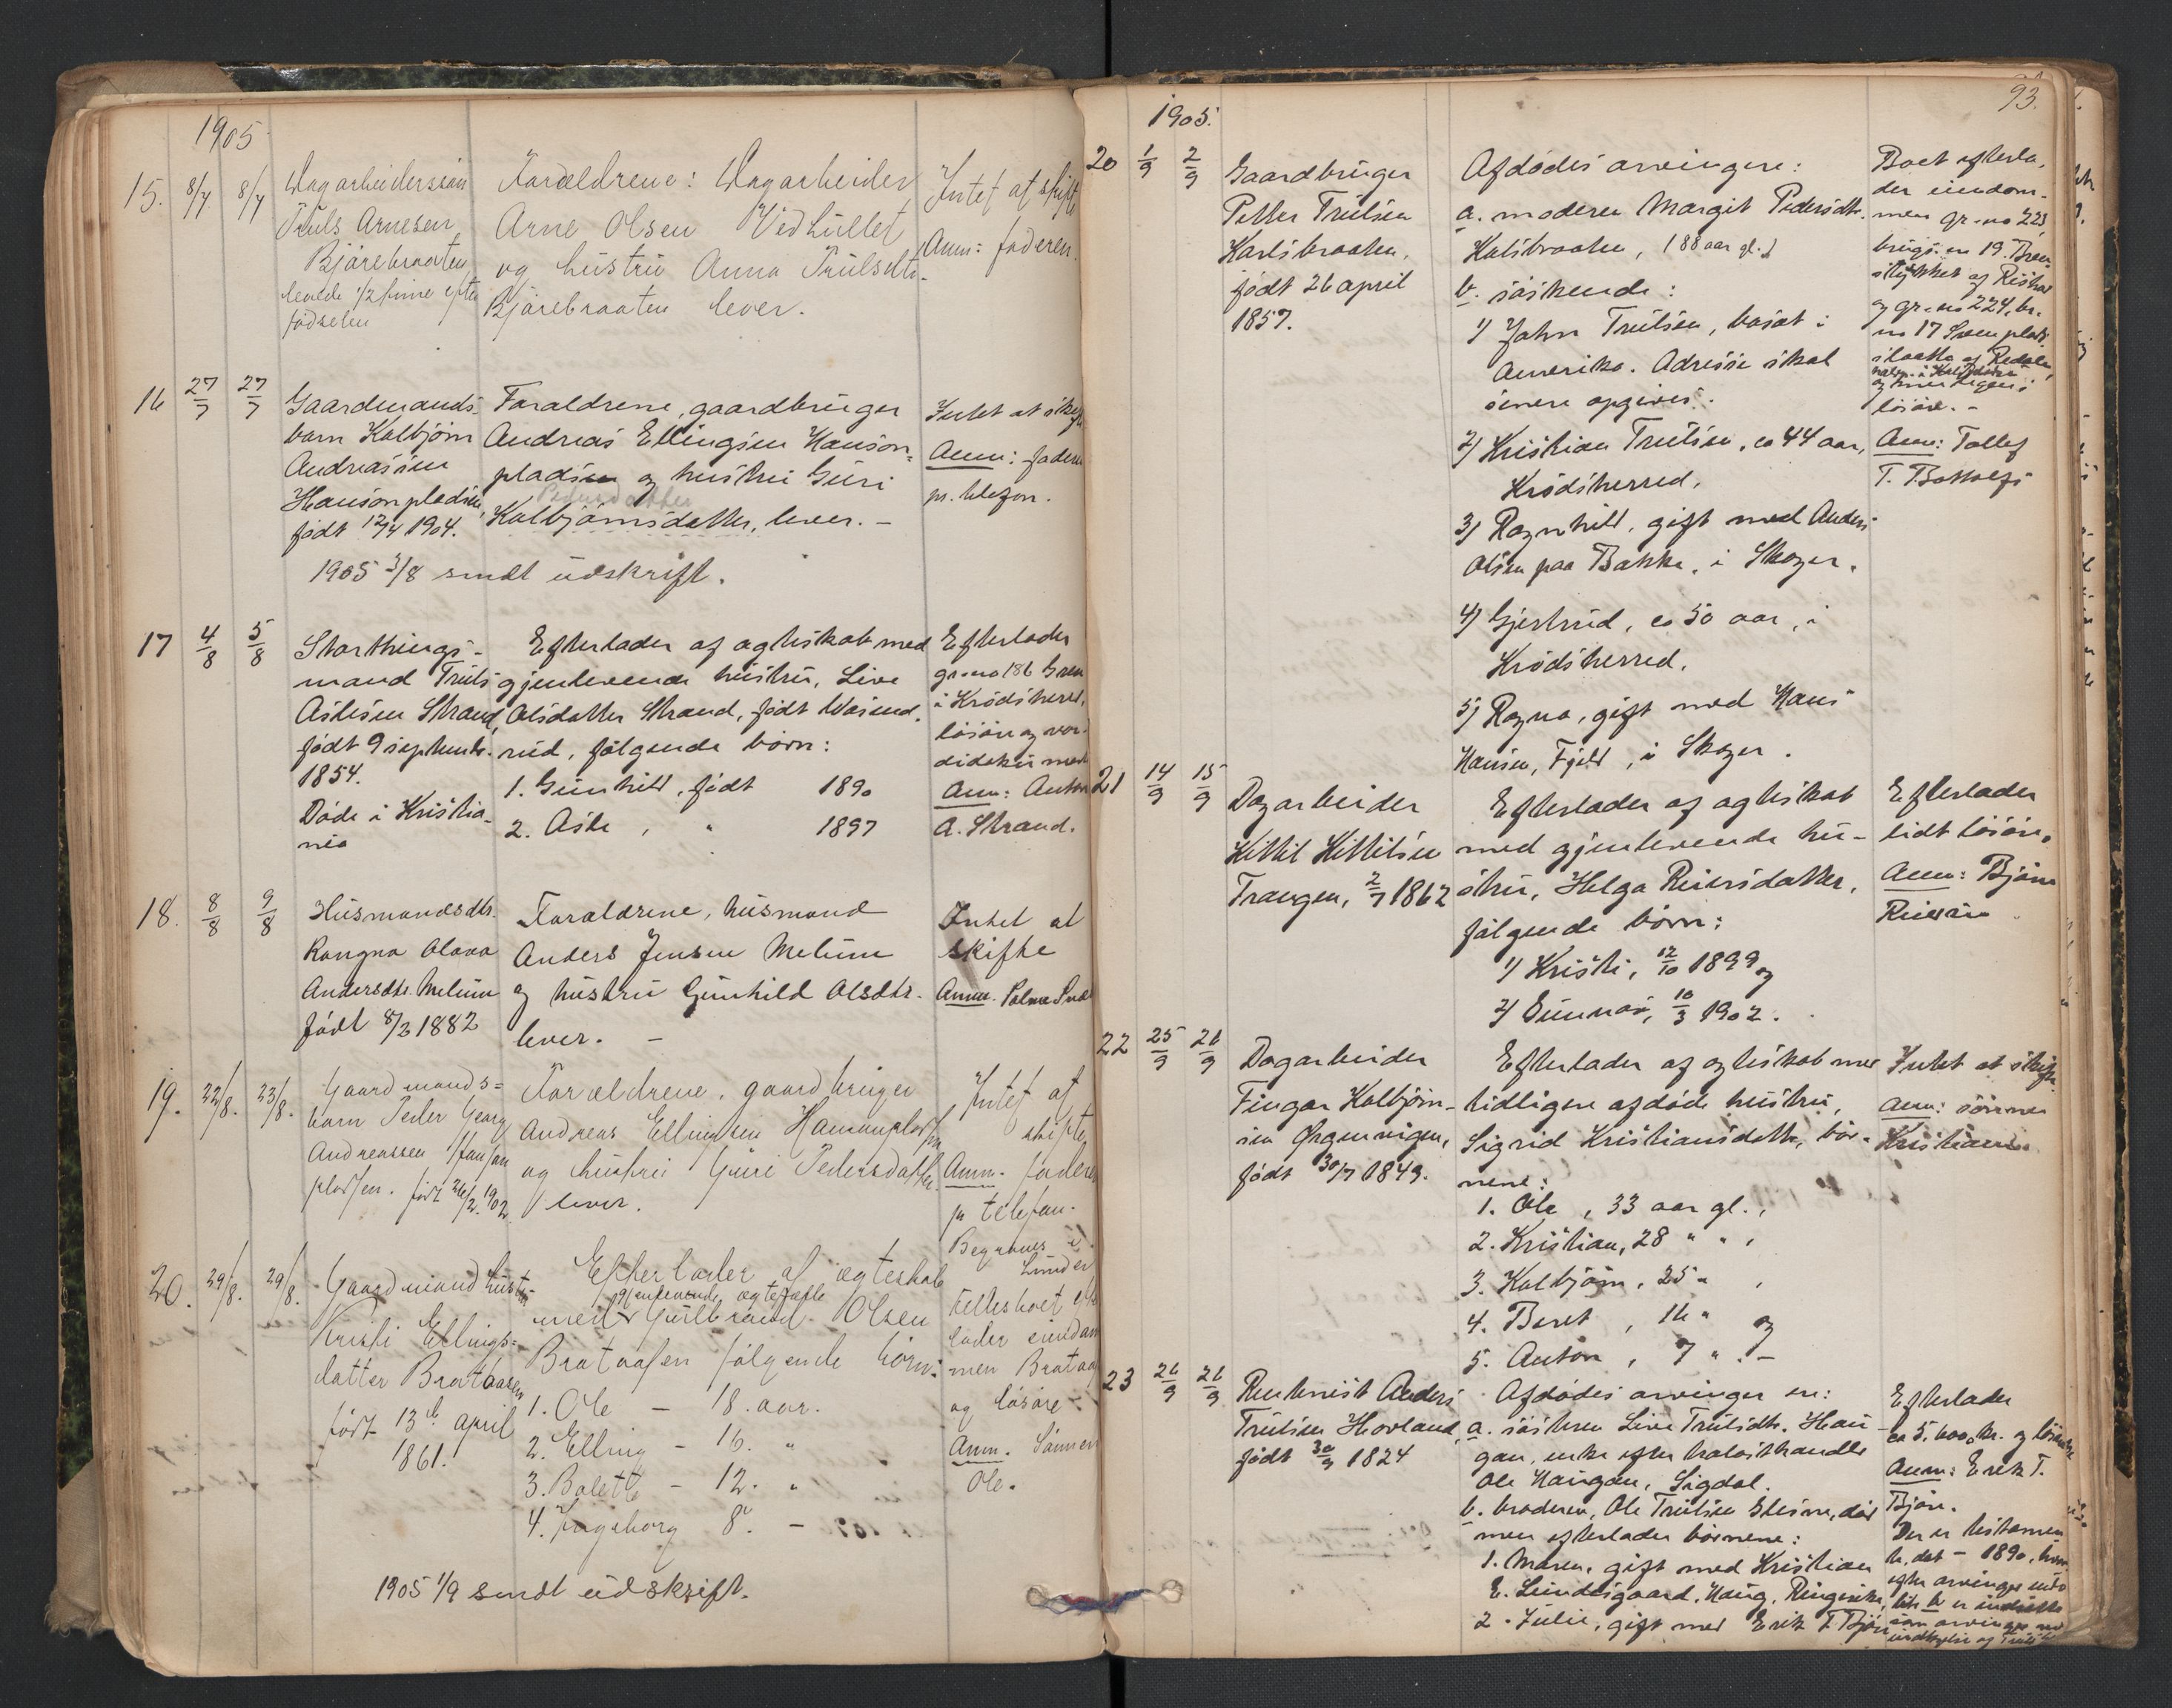 1905
15. 8/7 8/7
Dagarbeidersøn
Truls Arnesen
Bjørebraaten
levede 1/2 time efter
fødselen
Forældrene: Dagarbeider
Arne Olsen Vidhullet
og hustru Anna Trulsdtr.
Bjørebraaten lever.
Intet at skifte
Anm: faderen.
16 27/7 27/7
Gaardmands-
barn Kolbjørn
Andreassen
Hansonpladsen,
født 12/4 1904.
Forældrene, gaardbruger
Andreas Ellingsen Hanson=
pladsen og hustru Guri
Pedersdatter
Kolbjørnsdatter, lever. -
Intet at skifte
Anm: faderen
pr. telefon.
1905 3/8 sendt udskrift.
17 4/8 5/8
Storthings-
mand Truls
Aslesen Strand,
født 9 septembr.
1854.
Døde i Kristia-
nia
Efterlader af ægteskab med
gjenlevende hustru, Live
Olsdatter Strand, født Wasend-
rud, følgende børn:
1. Gunhild, født 1890
2. Asle, " 1897
Efterlader
gr.no 186
i Krødsherred,
løsøre og vær-
Anm: Anton
A. Strand.
18. 8/8 9/8
Husmandsdtr.
Rangna Olava
Andersdtr. Melum
født 8/3 1882
Forældrene, husmand
Anders Jensen Melum
og hustru Gunhild Olsdtr.
lever. -
Intet at
skifte
Anm.
19. 22/8. 23/8.
Gaardmands=
barn Peder Georg
Andreassen Hanson
pladsen. født 26/2. 1902.
Forældrene, gaardbruger
Andreas Ellingsen Hansonpladsen
og hustru Guri Pedersdatter.
lever.
Intet at
skifte
Anm. faderen
pr telefon.
Begraves i
Lunder
20. 29/8. 29/8.
Gaardmand hustru
Kristi Ellings=
datter Brataasen
født 13de april
1861.
Efterlader af ægteskab
gjenlevende ægtefælle
med Gulbrand Olsen
Brataasen følgende børn:
1. Ole - 18. aar.
2. Elling - 16. "
3. Bolette - 12. "
4. Ingeborg 8. -
Fellesboet efter-
lader eiendom
men Brataasen
og løsøre -
Anm. Sønnen
Ole.
1905 1/9 sendt udskrift.
93.
1905.
20 1/9 2/9
Gaardbruger
Petter Trulsen
Karlsbraaten,
født 26 april
1857.
Afdødes arvinger:
a. moderen Margit Pedersdtr.
Kalsbraaten, (88 aar gl.)
b. søskende:
1) John Trulsen, bosat i
Amerika. Adresse skal
senere opgives.
2) Kristian Trulsen, ca 44 aar,
Krødsherred.
3) Ragnhild, gift med Anders
Olsen paa Bakke, i Skoger.
4) Gjertrud, ca 50 aar, i
Krødsherred.
5) Ragna, gift med Hans
Hansen, Fjeld, i Skoger.
Boet efterla-
der eiendom-
men gr.no 223
brugs.no 19
og gr.no 224, br.
no 17
løsøre. -
Anm: Tollef
T. Bottolfs
21 14/9 15/9
Dagarbeider
Kittil Kittilsen
Trangen, 2/7 1862
Efterlader af ægteskab
med gjenlevende hu-
stru, Helga Reiersdatter,
følgende børn:
1) Kristi, 12/10 1899 og
2) Gunnar, 10/3 1902.
Efterlader
lidt løsøre.
Anm: Bjørn
Reiersen
22 25/9 26/9
Dagarbeider
Fingar Kolbjørn-
sen Ørgenvigen,
født 30/7 1849.
Efterlader af ægteskab med
tidligere afdøde hustru,
Sigrid Kristiansdatter, bør-
nene:
1. Ole, 33 aar gl.,
2. Kristian, 28 " ",
3. Kolbjørn, 25 " ,
4. Beret, 16 " og
5. Anton, 7 ". -
Intet at skifte
Anm: sønnen
Kristian.
23 26/9 26/9
Rentenist Anders
Trulsen Hovland,
født 30/9 1824
Afdødes arvinger er:
a. søsteren Live Trulsdtr. Hau-
gan, enke efter
Ole Haugan, Sigdal.
b. broderen, Ole Trulsen Glesne, død
men efterlader børnene:
1. Maren, gift med Kristian
E. Lundesgaard, Haug, Ringerike,
2. Julie, gift med Erik T. Bjøre
Efterlader
ca 5,600 kr. og løsøre
Anm: Erik T.
Bjøre.
Der er testamen
te, dat - 1890, hvor
efter arvinger